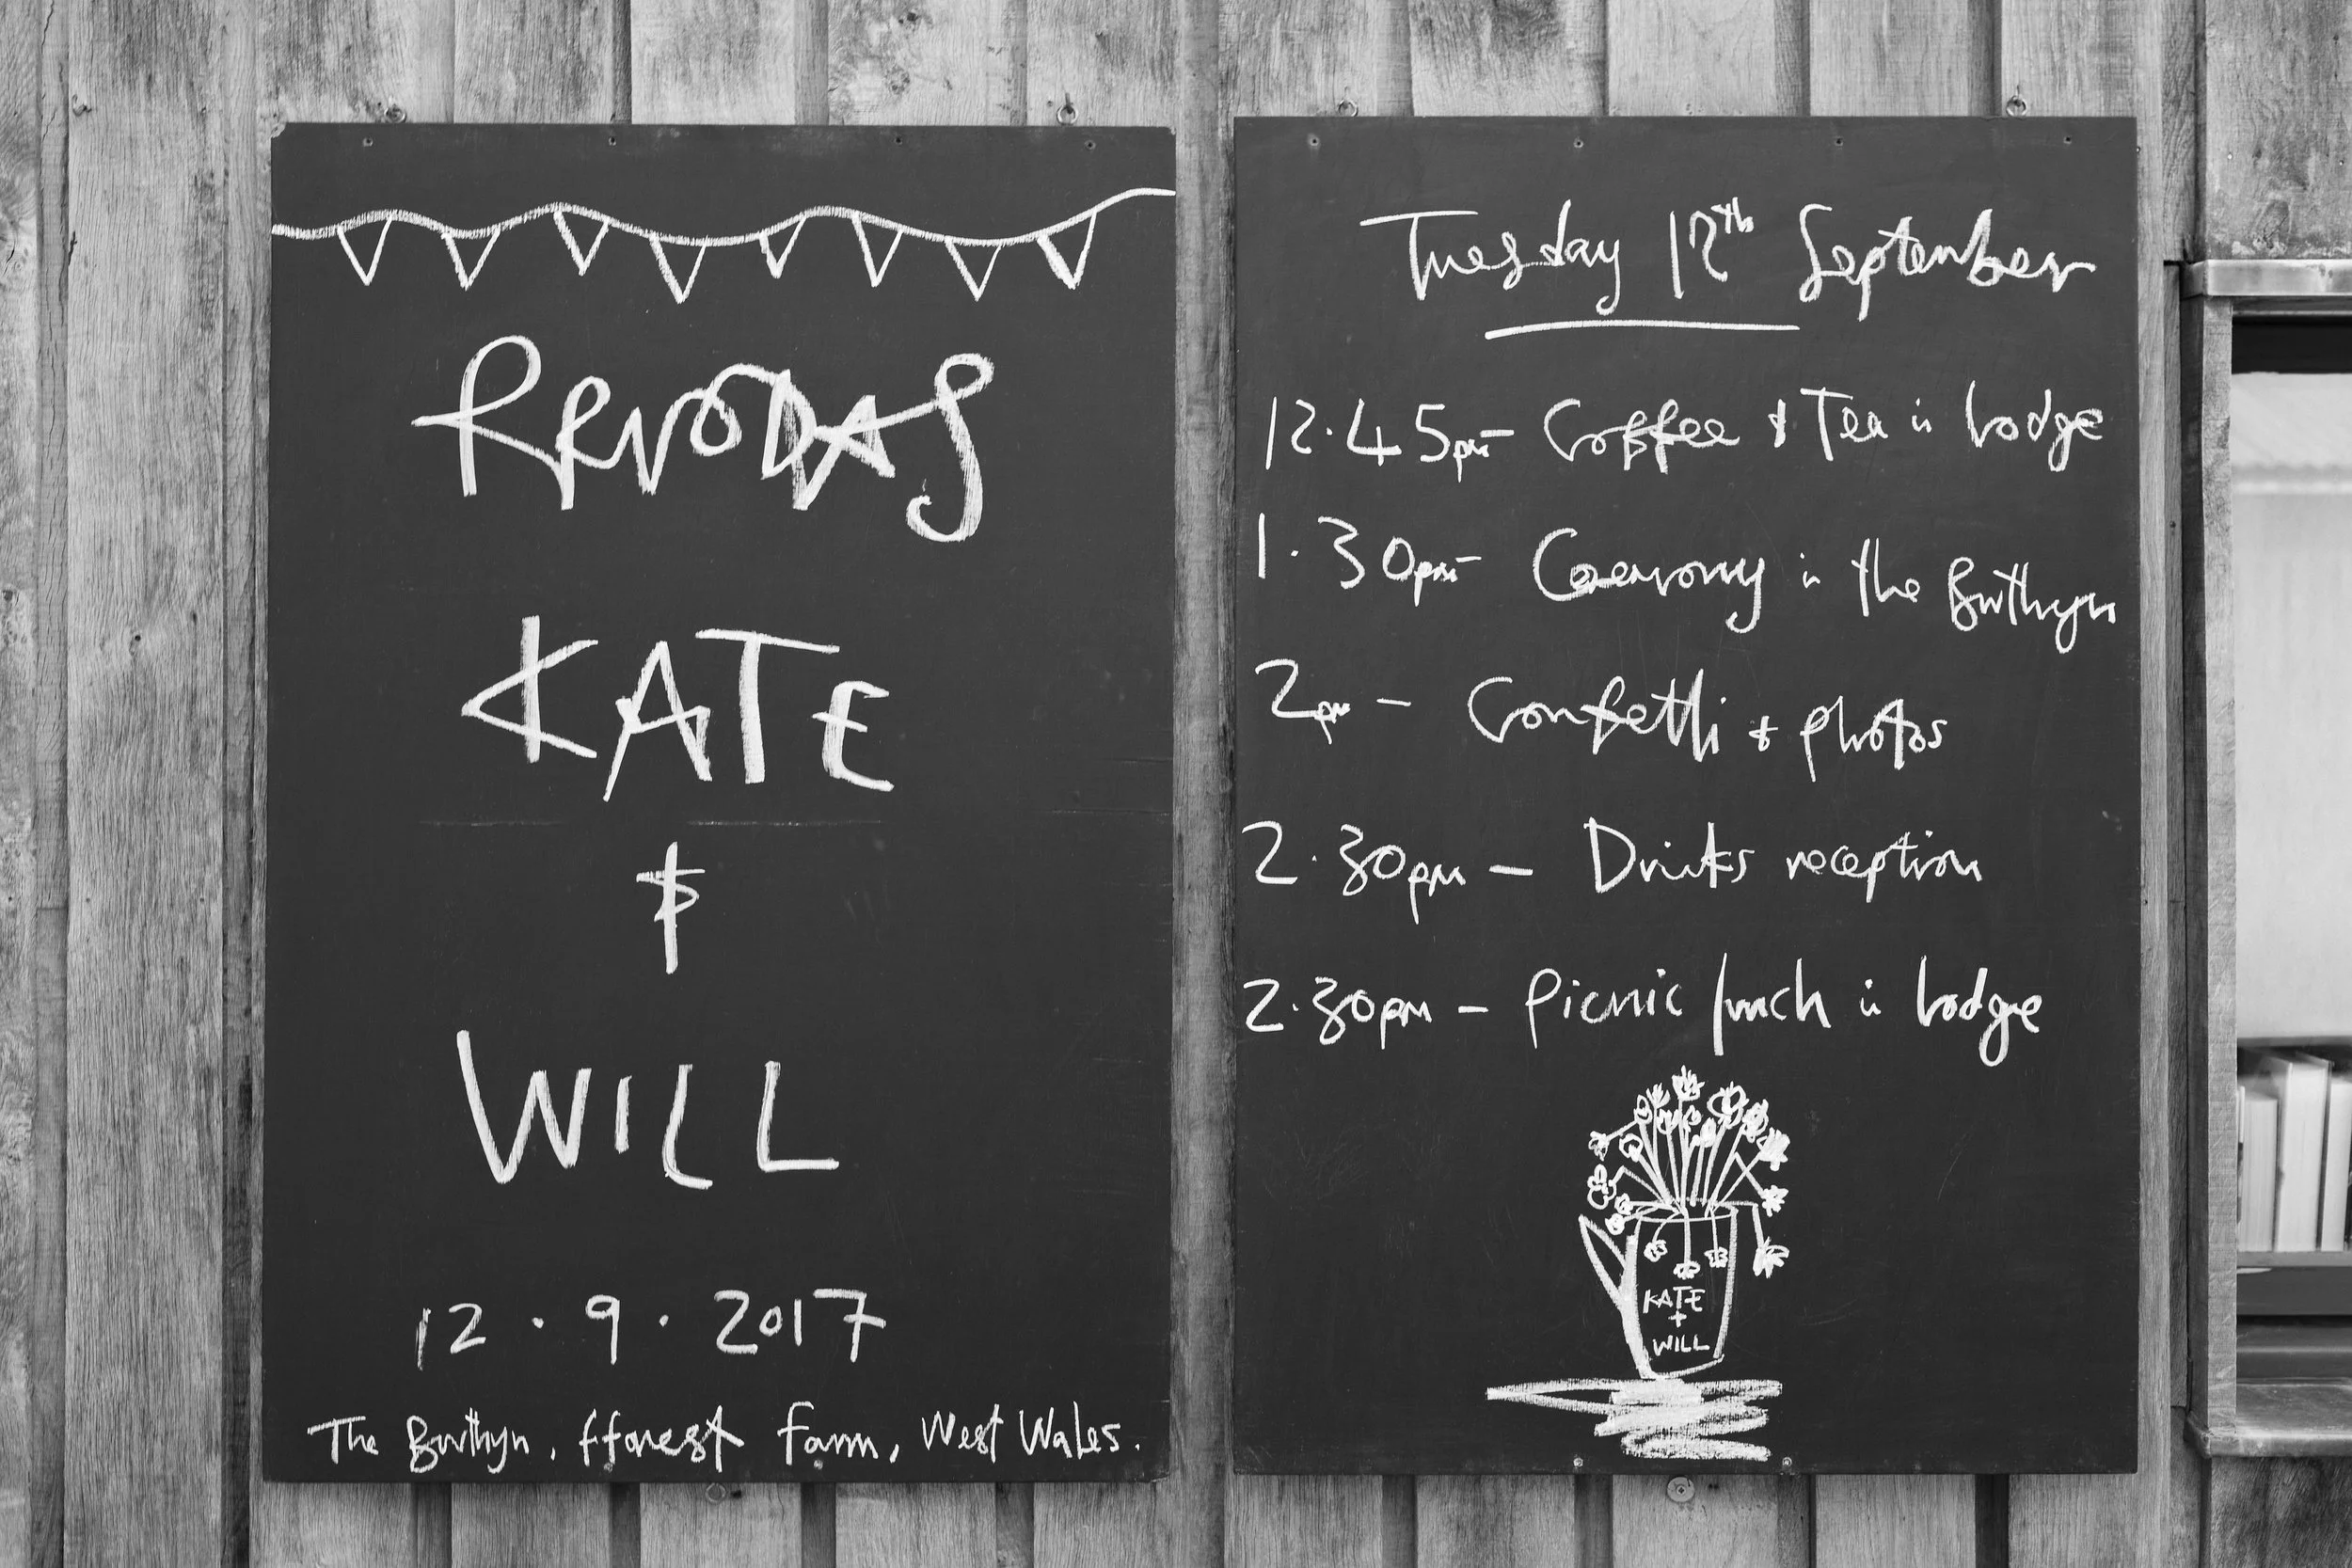 PRIODAS
KATE
&
WILL
12 · 9 · 2017
The Bwthyn, fforest Farm, West Wales.
Tuesday 12th September
12.45pm - Coffee & Tea in Lodge
1.30pm - Ceremony in the Bwthyn
2pm - Confetti + photos
2.30pm - Drinks reception
2.30pm - Picnic lunch in lodge
KATE
+
WILL